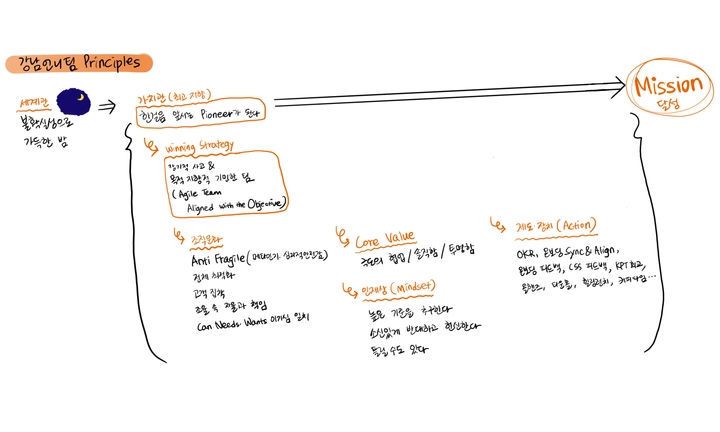 강남언니팀 Principles
세계관
불확실성으로
가득한 밤
가치관 (최고 지향)
한걸음 앞서는 Pioneer가 된다
Mission
달성
Winning Strategy
장기적 사고 &
목적 지향적 기민한 팀
(Agile Team
Aligned with the Objective)
조직문화
Anti Fragile (메타인지, 심리적안전감)
전체 최적화
고객 집착
자율과 책임
Can Needs Wants 이기심 일치
Core Value
주도의 협업 / 솔직함 / 투명함
인재상 (Mindset)
높은 기준을 추구한다
소신있게 반대하고 헌신한다
틀릴 수도 있다
제도·장치 (Action)
OKR, 원온원, Sync & Align,
온보딩 피드백, CSS 피드백, KPT 회고,
타운홀, 커피타임...